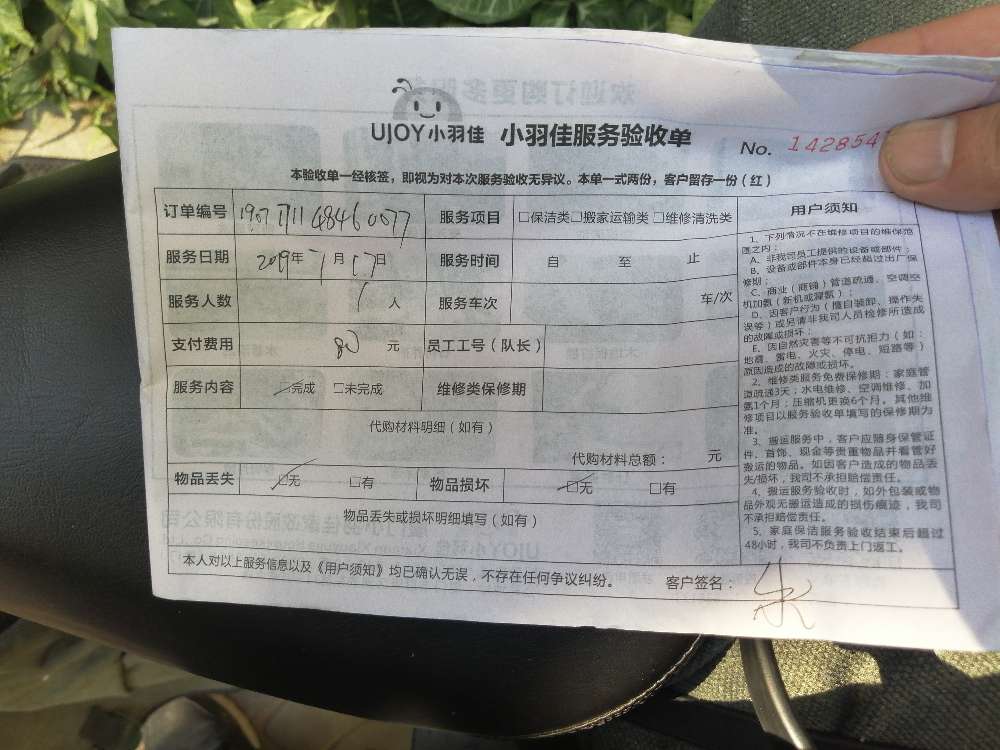 UJOY小羽佳 小羽佳服务验收单
No. 142854
本验收单一经核签，即视为对本次服务验收无异议。本单一式两份，客户留存一份（红）
订单编号 服务项目 □保洁类□搬家运输类□维修清洗类
服务日期 2019年7月17日 服务时间 自 至 止
服务人数 1 人 服务车次 车/次
支付费用 80 元 员工工号（队长）
服务内容 □完成 □未完成 维修类保修期
代购材料明细（如有）
代购材料总额： 元
物品丢失 □无 □有 物品损坏 □无 □有
物品丢失或损坏明细填写（如有）
本人对以上服务信息以及《用户须知》均已确认无误，不存在任何争议纠纷。 客户签名：朱
用户须知
1、下列情况不在维修项目的维保范
围之内：
A、非我司员工提供的设备或部件；
B、设备或部件本身已经超过出厂保
修期；
C、商业（商铺）管道疏通、空调空
机加氨（新机或漏氨）；
D、因客户行为（擅自装卸、操作失
误等）或另请非我司人员检修所造成
的故障或损坏；
E、因自然灾害等不可抗拒力（如：
地震、雷电、火灾、停电、短路等）
原因造成的故障或损坏。
2、维修类服务免费保修期：家庭管
道疏通3天；水电维修、空调维修、加
氨1个月；压缩机更换6个月。其他维
修项目以服务验收单填写的保修期为
准。
3、搬运服务中，客户应随身保管证
件、首饰、现金等贵重物品并看管好
搬运的物品。如因客户造成的物品丢
失/损坏，我司不承担赔偿责任。
4、搬运服务验收时，如外包装或物
品外观无搬运造成的损伤痕迹，我司
不承担赔偿责任。
5、家庭保洁服务验收结束后超过
48小时，我司不负责上门返工。